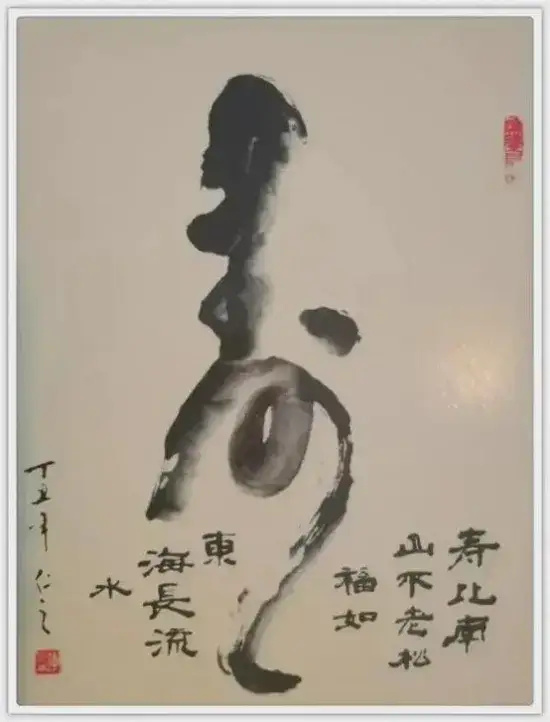 寿
寿比南
山不老松
福如
東
海長流
水
丁丑年仁之